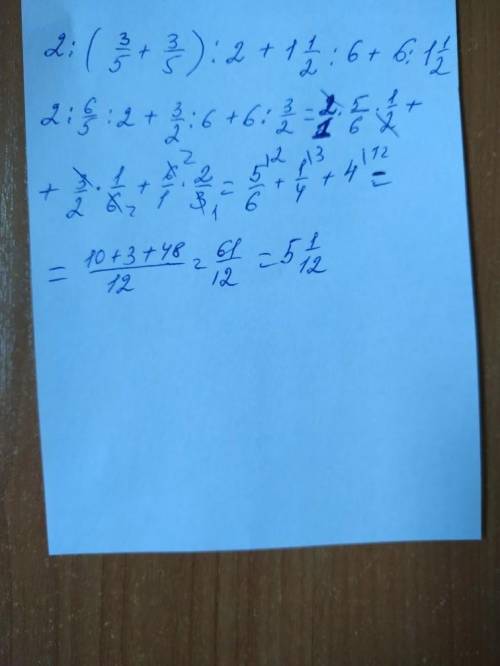 2 : ( 3/5 + 3/5 ) : 2 + 1 1/2 : 6 + 6 : 1 1/2
2 : 6/5 : 2 + 3/2 : 6 + 6 : 3/2 = 2/1 · 5/6 · 1/2 +
+ 3/2 · 1/6 2 + 6/1 2 · 2/3 1 = 5/6 \2 + 1/4 \3 + 4 \12 =
= 10+3+48/12 = 61/12 = 5 1/12